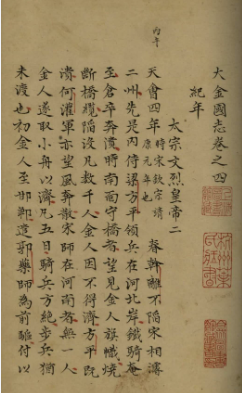 丙午
大金國志卷之四
紀年
太宗文烈皇帝二
天會四年時宋欽宗靖康元年也春斡離不陷宋相濬
二州先是內侍梁方平領兵在河北岸鐵騎奄
至倉卒奔潰時南面守橋者望見金人旗幟燒
斷橋纜陷沒凡數千人金人因不得濟方平既
潰何灌軍亦望風奔散宋師在河南者無一人
金人遂取小舟以濟凡五日騎兵方絕步兵猶
未渡也初金人至邯鄲遣郭藥師為前驅付以